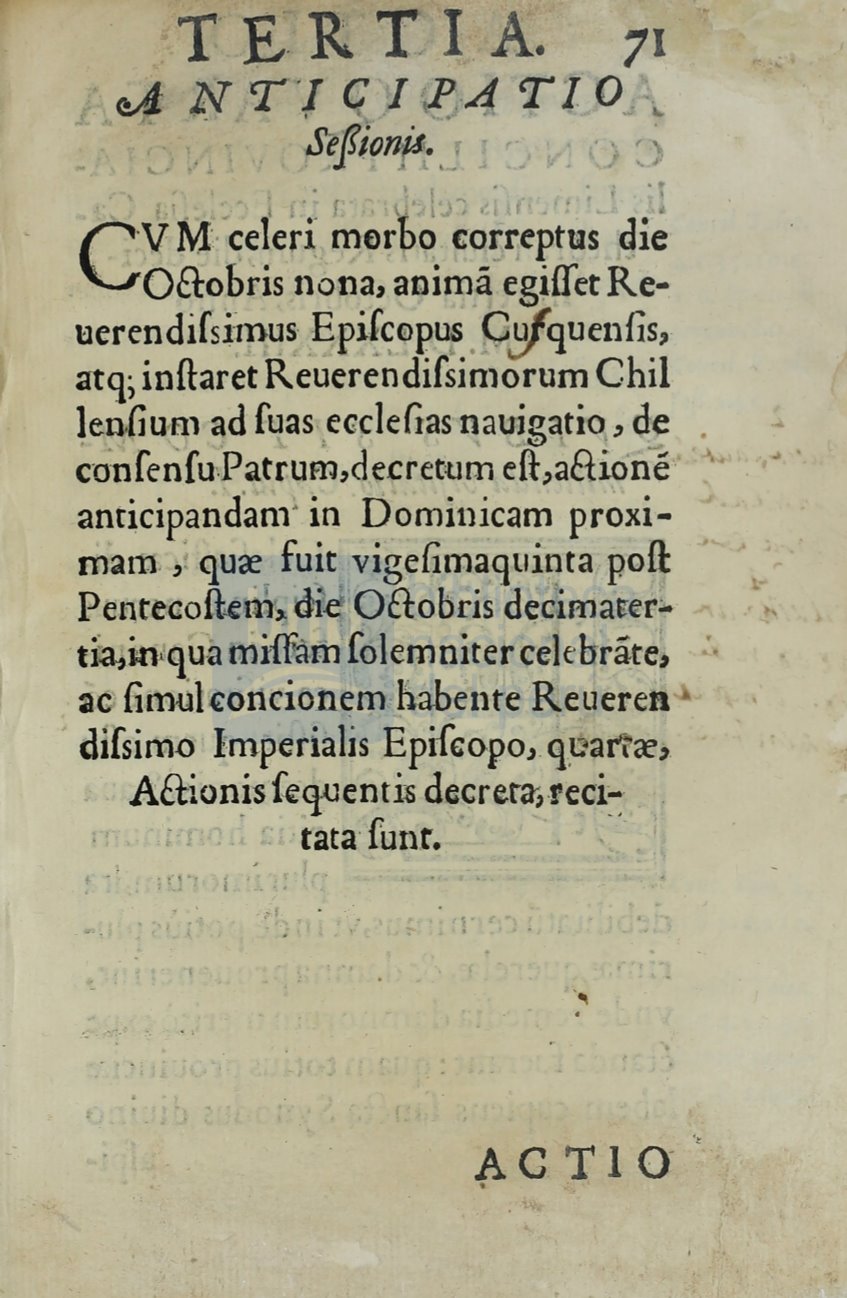 TERTIA. 71
ANTICIPATIO
Seßionis.
CVM celeri morbo correptus die
Octobris nona, animã egiſſet Re-
uerendiſsimus Epiſcopus Cuſquenſis,
atq; inſtaret Reuerendiſsimorum Chil
lenſium ad ſuas eccleſias nauigatio, de
conſenſu Patrum, decretum eſt, actionẽ
anticipandam in Dominicam proxi-
mam, quæ fuit vigeſimaquinta poſt
Pentecoſtem, die Octobris decimater-
tia, in qua miſſam ſolemniter celebrãte,
ac ſimul concionem habente Reueren
diſsimo Imperialis Epiſcopo, quartæ,
Actionis ſequentis decreta, reci-
tata ſunt.
ACTIO